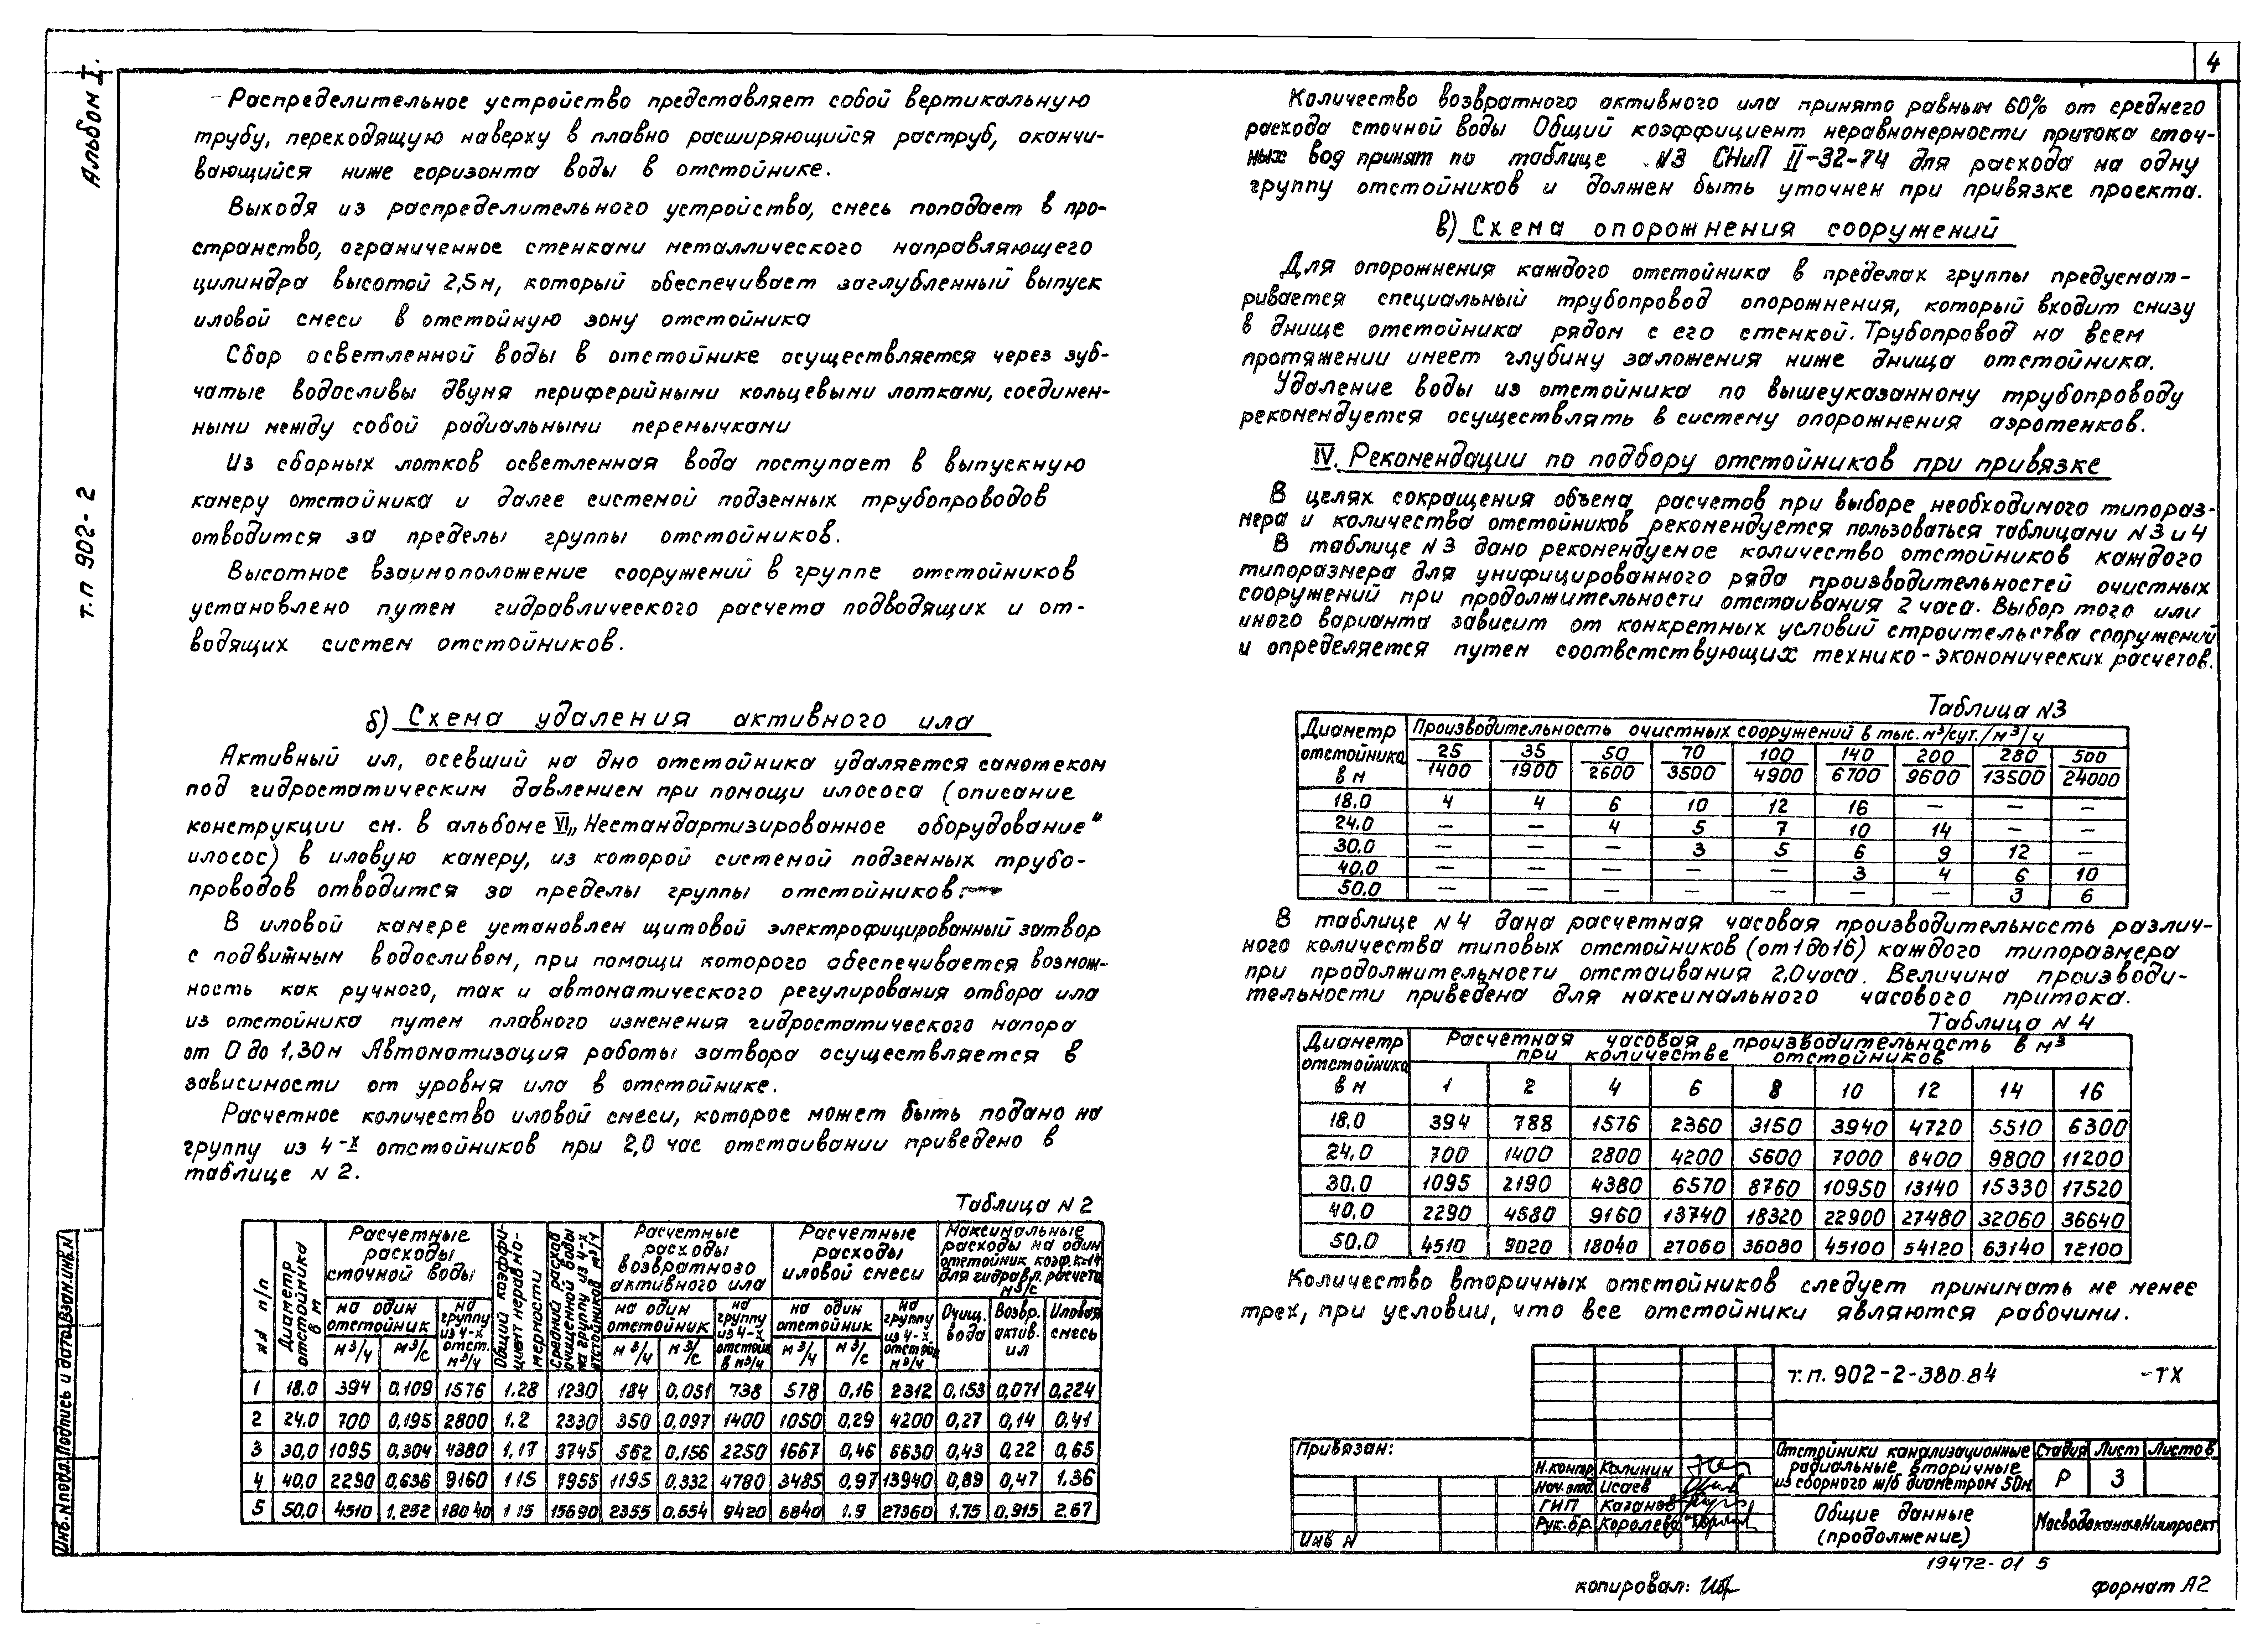 4
Альбом I.
т.п 902-2
Распределительное устройство представляет собой вертикальную
трубу, переходящую наверху в плавно расширяющийся раструб, оканчи-
вающийся ниже горизонта воды в отстойнике.
Выходя из распределительного устройства, смесь попадает в про-
странство, ограниченное стенками металлического направляющего
цилиндра высотой 2,5м, который обеспечивает заглубленный выпуск
иловой смеси в отстойную зону отстойника
Сбор осветленной воды в отстойнике осуществляется через зуб-
чатые водосливы двумя периферийными кольцевыми лотками, соединен-
ными между собой радиальными перемычками
Из сборных лотков осветленная вода поступает в выпускную
камеру отстойника и далее системой подземных трубопроводов
отводится за пределы группы отстойников.
Высотное взаимоположение сооружений в группе отстойников
установлено путем гидравлического расчета подводящих и от-
водящих систем отстойников.
б) Схема удаления активного ила
Активный ил, осевший на дно отстойника удаляется самотеком
под гидростатическим давлением при помощи илососа (описание
конструкции см. в альбоме VI „Нестандартизированное оборудование"
илосос) в иловую камеру, из которой системой подземных трубо-
проводов отводится за пределы группы отстойников.
В иловой камере установлен щитовой электрофицированный затвор
с подвижным водосливом, при помощи которого обеспечивается возмож-
ность как ручного, так и автоматического регулирования отбора ила
из отстойника путем плавного изменения гидростатического напора
от 0 до 1,30м Автоматизация работы затвора осуществляется в
зависимости от уровня ила в отстойнике.
Расчетное количество иловой смеси, которое может быть подано на
группу из 4-х отстойников при 2,0 час отстаивании приведено в
таблице N 2.
Таблица N 2
NN п/п
Диаметр отстойника в м
Расчетные расходы сточной воды
Общий коэффициент неравномерности
Средний расход очищенной воды на группу из 4-х отстойников м³/ч
Расчетные расходы возвратного активного ила
Расчетные расходы иловой смеси
Максимальные расходы на один отстойник коэф. К=1.4 для гидравл. расчета м³/с
на один отстойник на группу из 4-х отст. м³/ч на один отстойник на группу из 4-х отстойн в м³/ч на один отстойник на группу из 4-х отстойн. м³/ч Очищ. вода Возвр. актив. ил Иловая смесь
м³/ч м³/с м³/ч м³/с м³/ч м³/с
1 18.0 394 0,109 1576 1.28 1230 184 0,051 738 578 0,16 2312 0,153 0,071 0,224
2 24.0 700 0,195 2800 1.2 2330 350 0,097 1400 1050 0,29 4200 0,27 0,14 0,41
3 30,0 1095 0,304 4380 1,17 3745 562 0,156 2250 1667 0,46 6630 0,43 0,22 0,65
4 40,0 2290 0,636 9160 1 15 7955 1195 0.332 4780 3485 0,97 13940 0,89 0,47 1.36
5 50,0 4510 1.252 180 40 1 15 15690 2355 0.654 9420 6840 1.9 27360 1.75 0.915 2.67
Количество возвратного активного ила принято равным 60% от среднего
расхода сточной воды Общий коэффициент неравномерности притока сточ-
ных вод принят по таблице N3 СНиП II-32-74 для расхода на одну
группу отстойников и должен быть уточнен при привязке проекта.
в) Схема опорожнения сооружений
Для опорожнения каждого отстойника в пределах группы предусмат-
ривается специальный трубопровод опорожнения, который входит снизу
в днище отстойника рядом с его стенкой. Трубопровод на всем
протяжении имеет глубину заложения ниже днища отстойника.
Удаление воды из отстойника по вышеуказанному трубопроводу
рекомендуется осуществлять в систему опорожнения аэротенков.
IV. Рекомендации по подбору отстойников при привязке
В целях сокращения объема расчетов при выборе необходимого типораз-
мера и количества отстойников рекомендуется пользоваться таблицами N3 и 4
В таблице N3 дано рекомендуемое количество отстойников каждого
типоразмера для унифицированного ряда производительностей очистных
сооружений при продолжительности отстаивания 2 часа. Выбор того или
иного варианта зависит от конкретных условий строительства сооружений
и определяется путем соответствующих технико-экономических расчетов.
Таблица N3
Диаметр отстойника в м
Производительность очистных сооружений в тыс. м³/сут./м³/ч
25 35 50 70 100 140 200 280 500
1400 1900 2600 3500 4900 6700 9600 13500 24000
18.0 4 4 6 10 12 16 — — —
24.0 — — 4 5 7 10 14 — —
30.0 — — — 3 5 6 9 12 —
40.0 — — — — — 3 4 6 10
50.0 — — — — — — — 3 6
В таблице N4 дана расчетная часовая производительность различ-
ного количества типовых отстойников (от 1 до 16) каждого типоразмера
при продолжительности отстаивания 2.0 часа. Величина производи-
тельности приведена для максимального часового притока.
Таблица N 4
Диаметр отстойника в м
Расчетная часовая производительность в м³
при количестве отстойников
1 2 4 6 8 10 12 14 16
18.0 394 788 1576 2360 3150 3940 4720 5510 6300
24.0 700 1400 2800 4200 5600 7000 8400 9800 11200
30.0 1095 2190 4380 6570 8760 10950 13140 15330 17520
40.0 2290 4580 9160 13740 18320 22900 27480 32060 36640
50.0 4510 9020 18040 27060 36080 45100 54120 63140 72100
Количество вторичных отстойников следует принимать не менее
трех, при условии, что все отстойники являются рабочими.
т.п. 902-2-380.84 -ТХ
Привязан:
Инв N
Н.контр. Калинин
Нач.отд. Исаев
ГИП Казанов
Рук.бр. Королева
Отстойники канализационные
радиальные вторичные
из сборного ж/б диаметром 50м
Стадия Лист Листов
Р 3
Общие данные
(продолжение)
МосводоканалНиипроект
19472-01 5
копировал:
формат А2
Инв.N подл. Подпись и дата Взам.инв.N